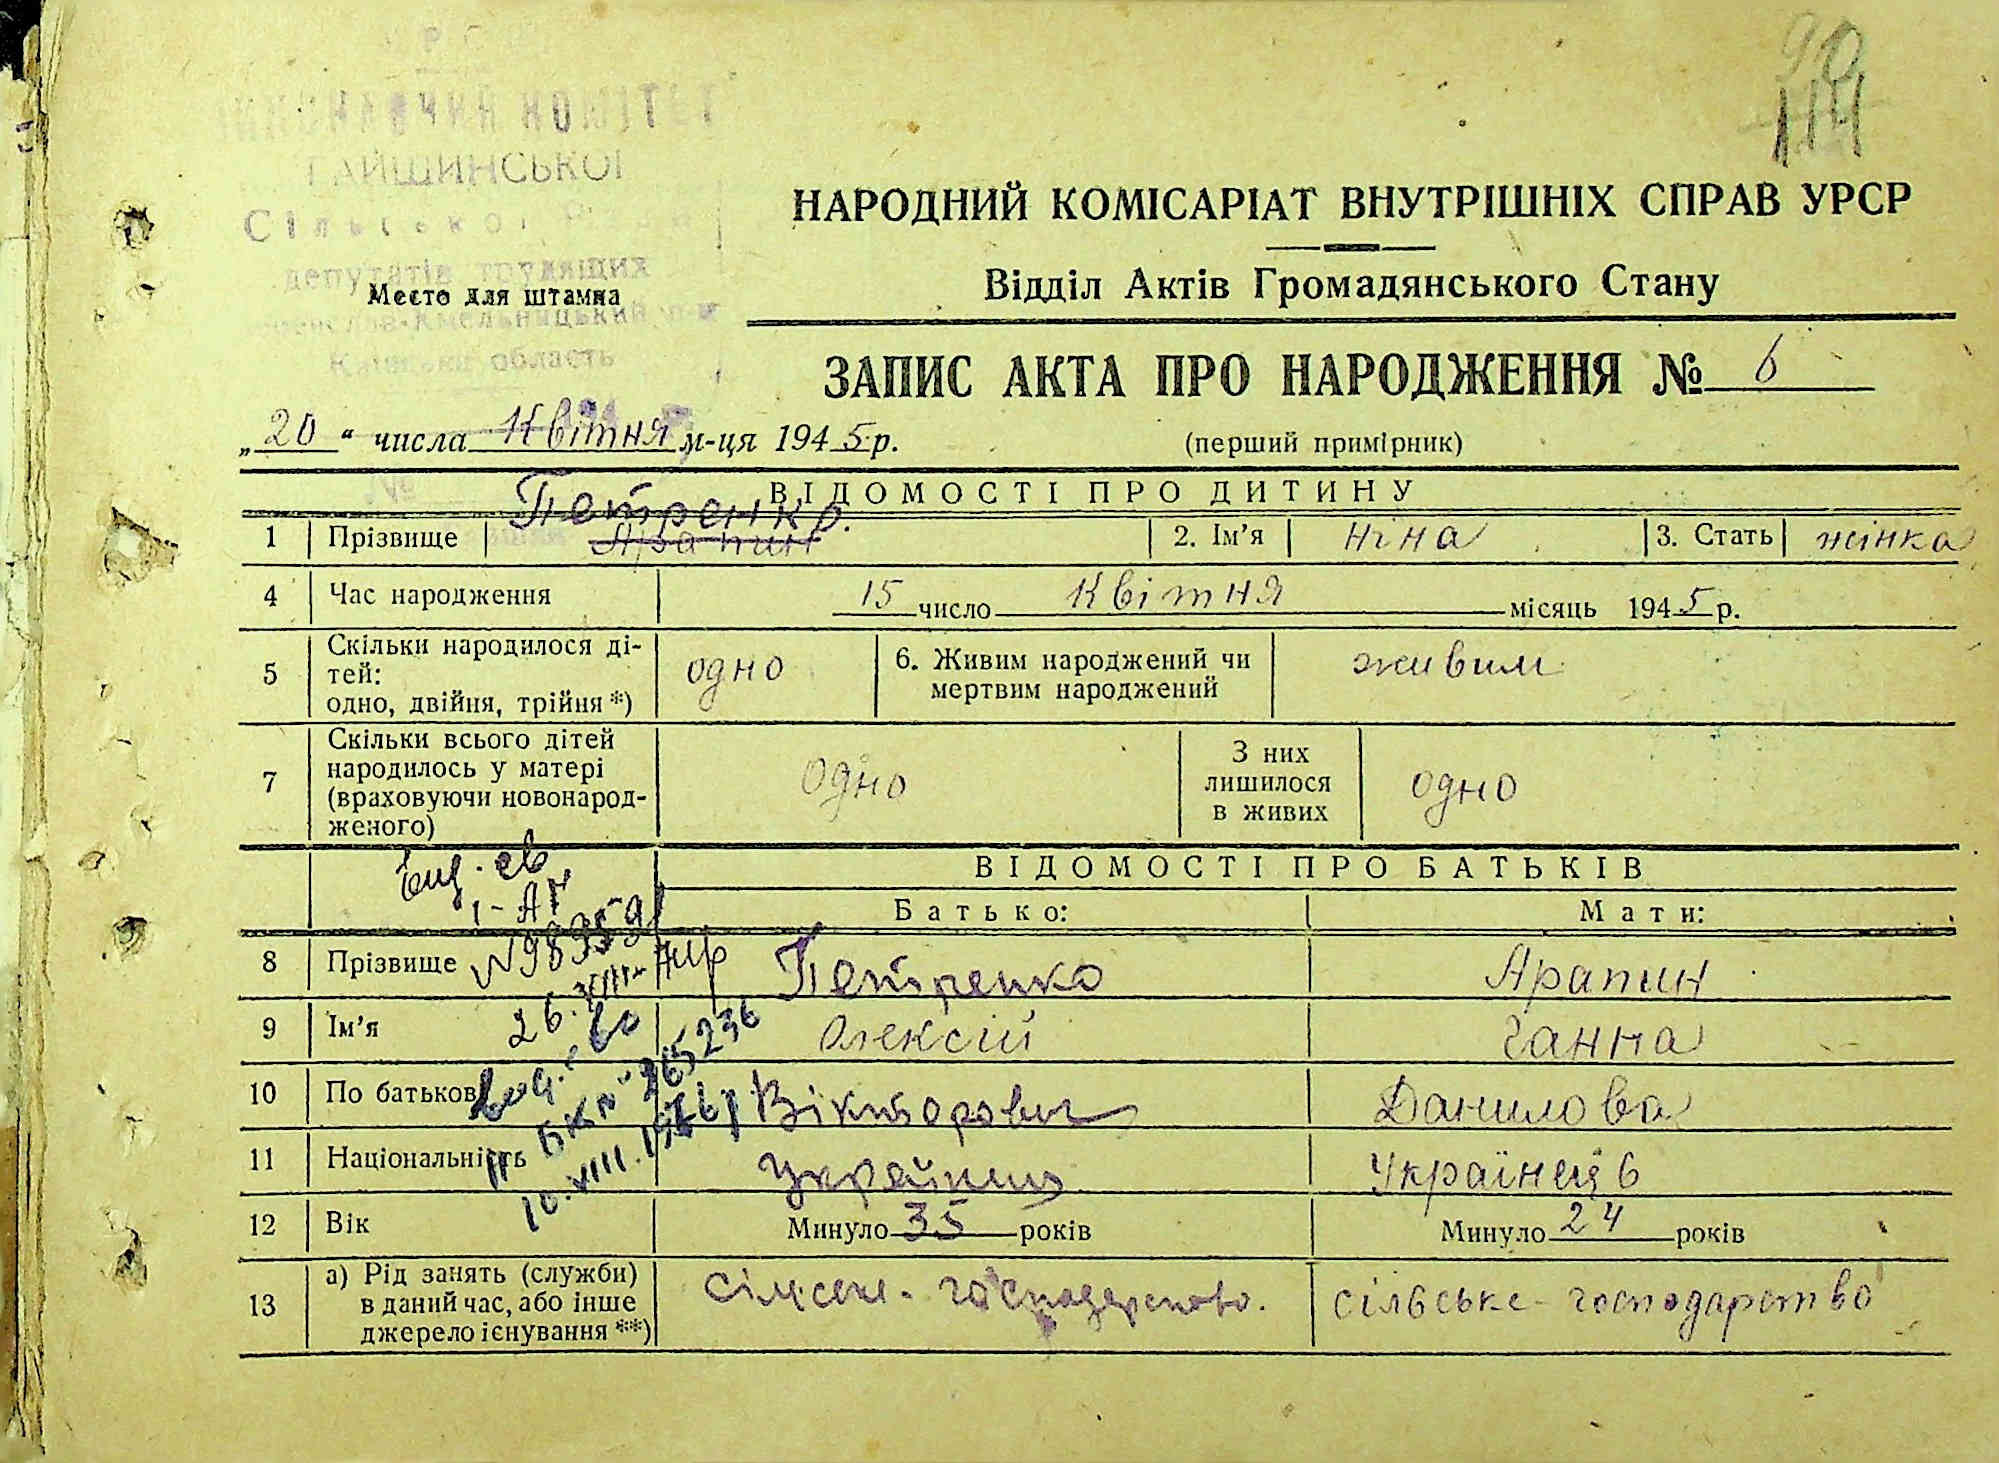 90
114
ВИКОНАВЧИЙ КОМІТЕТ
ГАЙШИНСЬКОЇ
Сільської Ради
депутатів трудящих
Место для штампа
Київська область
НАРОДНИЙ КОМІСАРІАТ ВНУТРІШНІХ СПРАВ УРСР
Відділ Актів Громадянського Стану
ЗАПИС АКТА ПРО НАРОДЖЕННЯ № 6
„20“ числа Квітня м-ця 1945 р. (перший примірник)
ВІДОМОСТІ ПРО ДИТИНУ
Петренко.
1 Прізвище Арапин 2. Ім'я Ніна 3. Стать жінка
4 Час народження 15 число Квітня місяць 1945 р.
5 Скільки народилося ді-
тей:
одно, двійня, трійня *) одно 6. Живим народжений чи
мертвим народжений живим
7 Скільки всього дітей
народилось у матері
(враховуючи новонарод-
женого) одно З них
лишилося
в живих одно
ВІДОМОСТІ ПРО БАТЬКІВ
Батько: Мати:
8 Прізвище Петренко Арапин
9 Ім'я Олексій Ганна
10 По батькові Вікторович Данилова
11 Національність Українець
12 Вік Минуло 35 років Минуло 24 років
13 а) Рід занять (служби)
в даний час, або інше
джерело існування **) сільське-господарство. сільське-господарство